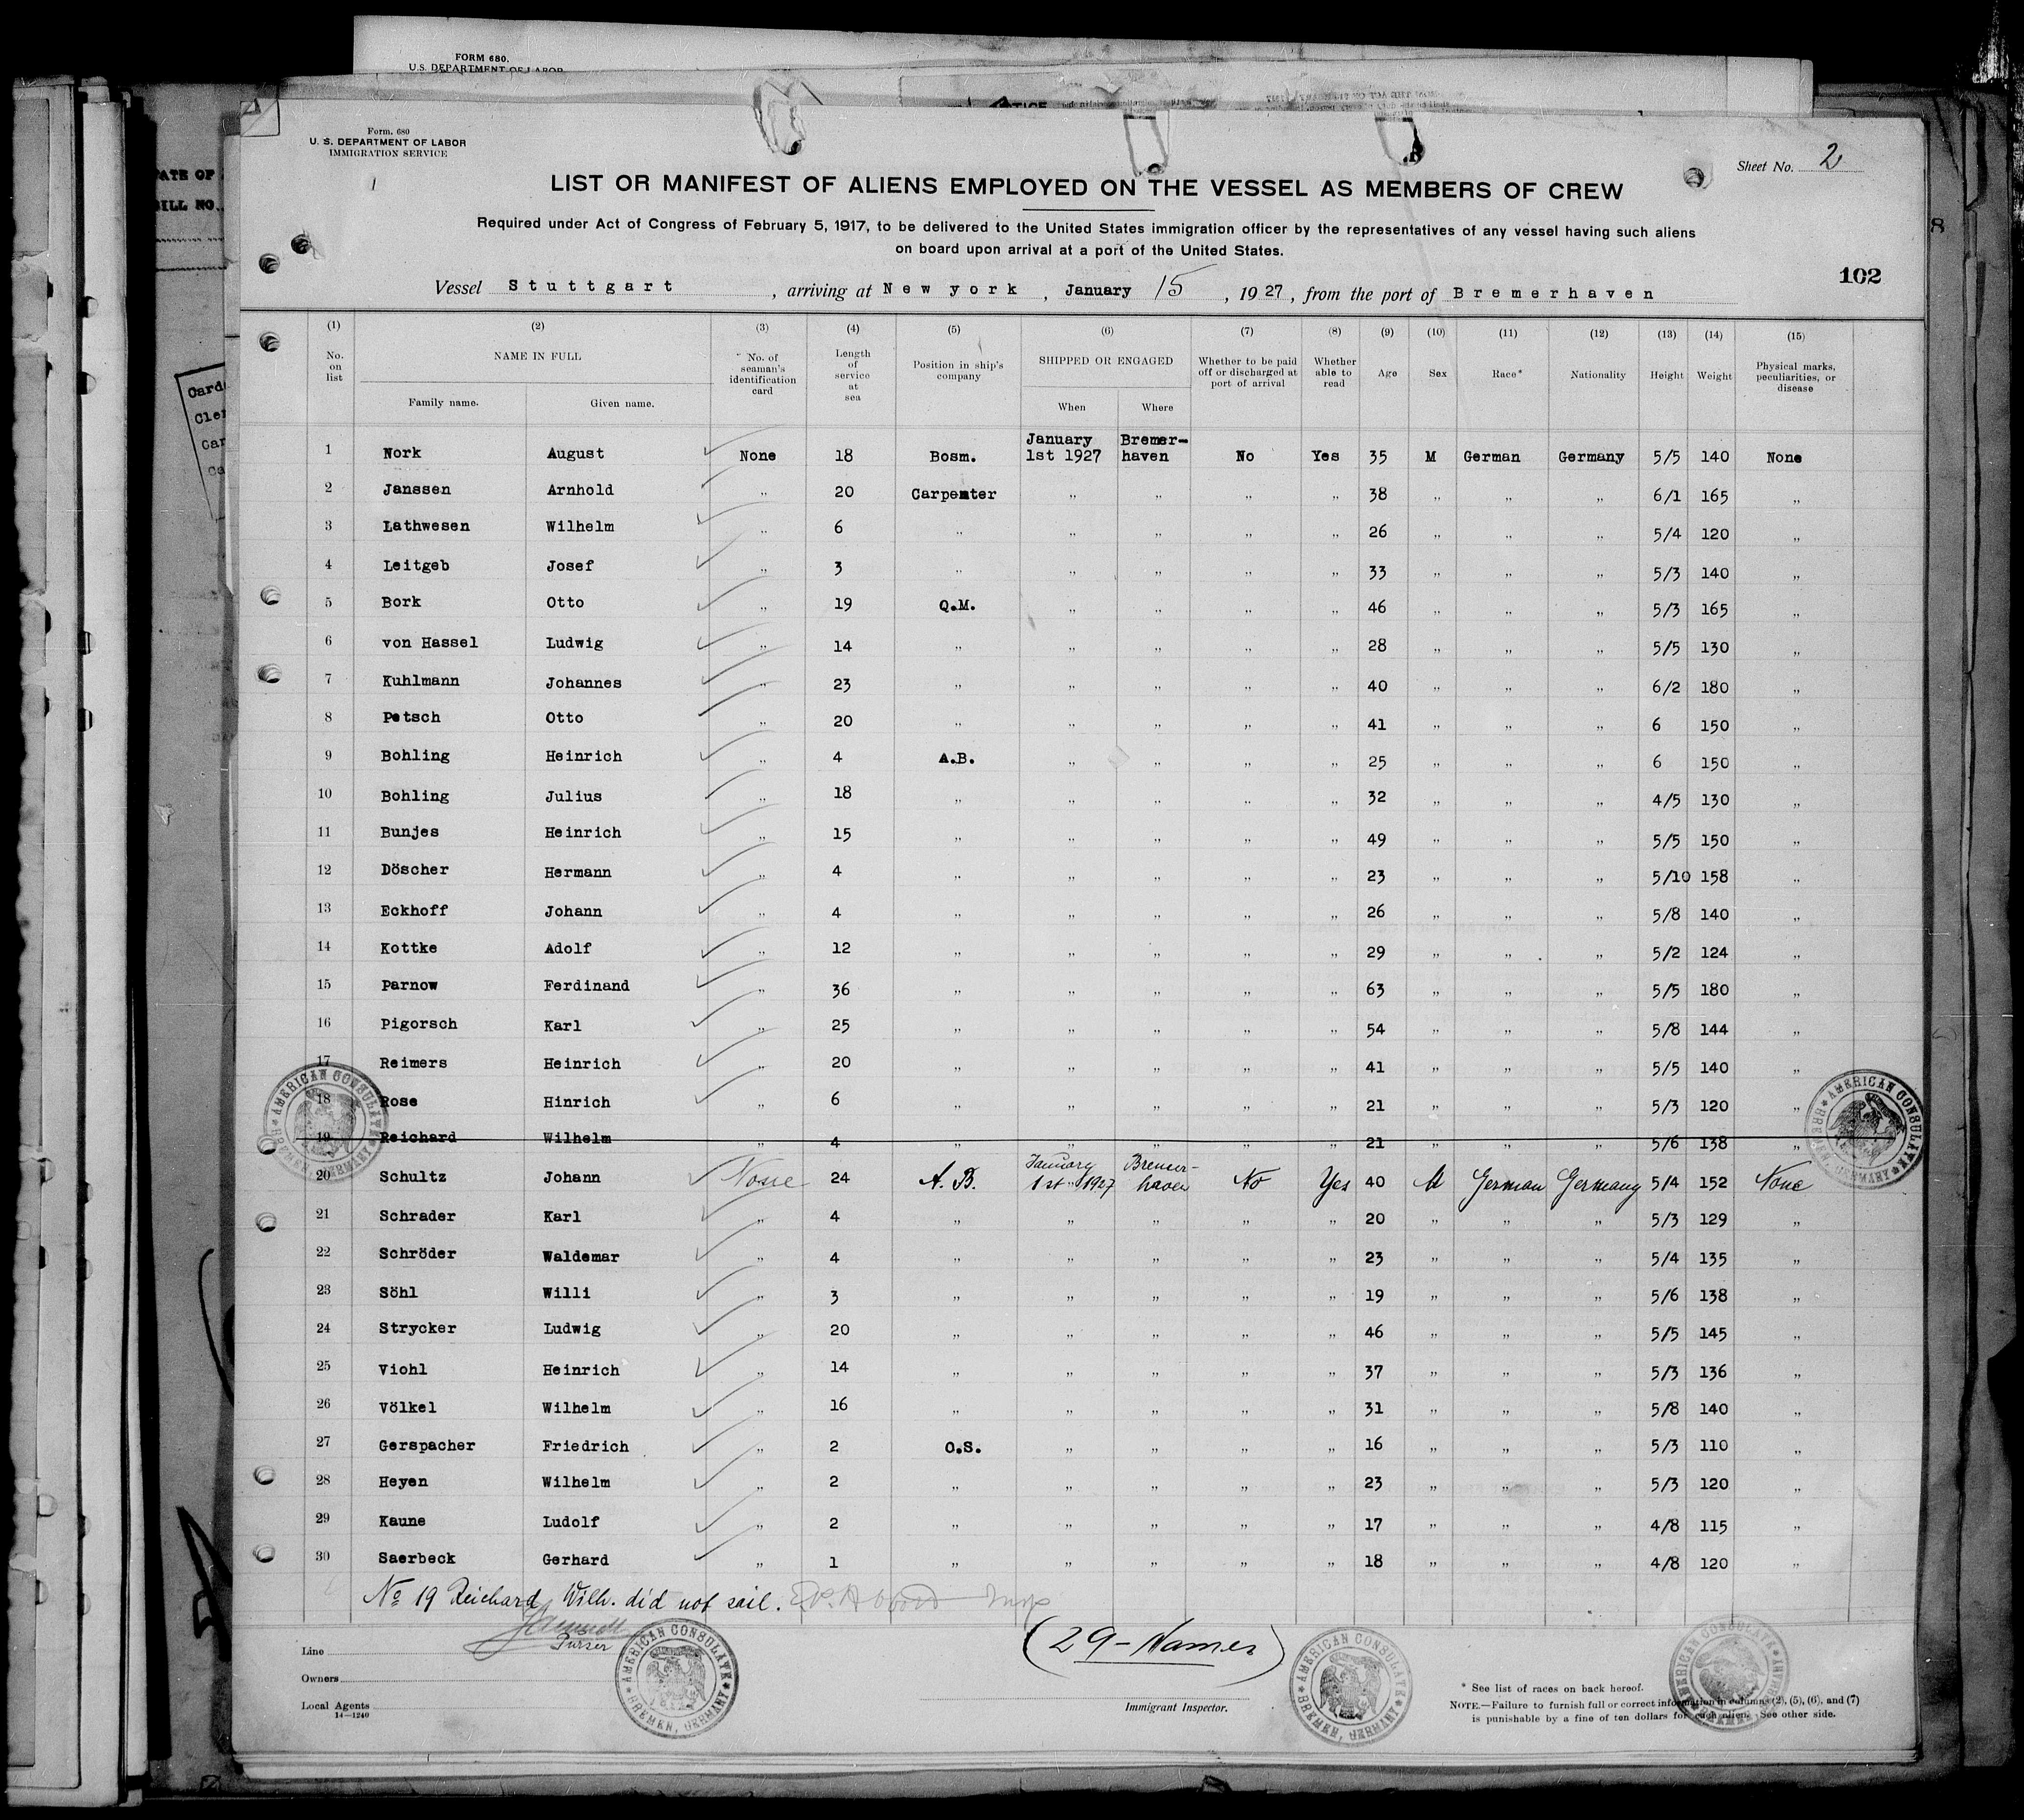 FORM 680.
U.S. DEPARTMENT OF LABOR
Form. 680
U. S. DEPARTMENT OF LABOR
IMMIGRATION SERVICE
Sheet No. 2
LIST OR MANIFEST OF ALIENS EMPLOYED ON THE VESSEL AS MEMBERS OF CREW
Required under Act of Congress of February 5, 1917, to be delivered to the United States immigration officer by the representatives of any vessel having such aliens
on board upon arrival at a port of the United States.
102
Vessel Stuttgart, arriving at New york, January 15, 1927, from the port of Bremerhaven
(1) (2) (3) (4) (5) (6) (7) (8) (9) (10) (11) (12) (13) (14) (15)
No. on list NAME IN FULL Family name. Given name. No. of seaman's identification card Length of service at sea Position in ship's company SHIPPED OR ENGAGED When Where Whether to be paid off or discharged at port of arrival Whether able to read Age Sex Race* Nationality Height Weight Physical marks, peculiarities, or disease
1 Nork August None 18 Bosm. January 1st 1927 Bremer-haven No Yes 35 M German Germany 5/5 140 None
2 Janssen Arnhold ,, 20 Carpenter ,, ,, ,, ,, 38 ,, ,, ,, 6/1 165 ,,
3 Lathwesen Wilhelm ,, 6 ,, ,, ,, ,, ,, 26 ,, ,, ,, 5/4 120 ,,
4 Leitgeb Josef ,, 3 ,, ,, ,, ,, ,, 33 ,, ,, ,, 5/3 140 ,,
5 Bork Otto ,, 19 Q.M. ,, ,, ,, ,, 46 ,, ,, ,, 5/3 165 ,,
6 von Hassel Ludwig ,, 14 ,, ,, ,, ,, ,, 28 ,, ,, ,, 5/5 130 ,,
7 Kuhlmann Johannes ,, 23 ,, ,, ,, ,, ,, 40 ,, ,, ,, 6/2 180 ,,
8 Petsch Otto ,, 20 ,, ,, ,, ,, ,, 41 ,, ,, ,, 6 150 ,,
9 Bohling Heinrich ,, 4 A.B. ,, ,, ,, ,, 25 ,, ,, ,, 6 150 ,,
10 Bohling Julius ,, 18 ,, ,, ,, ,, ,, 32 ,, ,, ,, 4/5 130 ,,
11 Bunjes Heinrich ,, 15 ,, ,, ,, ,, ,, 49 ,, ,, ,, 5/5 150 ,,
12 Döscher Hermann ,, 4 ,, ,, ,, ,, ,, 23 ,, ,, ,, 5/10 158 ,,
13 Eckhoff Johann ,, 4 ,, ,, ,, ,, ,, 26 ,, ,, ,, 5/8 140 ,,
14 Kottke Adolf ,, 12 ,, ,, ,, ,, ,, 29 ,, ,, ,, 5/2 124 ,,
15 Parnow Ferdinand ,, 36 ,, ,, ,, ,, ,, 63 ,, ,, ,, 5/5 180 ,,
16 Pigorsch Karl ,, 25 ,, ,, ,, ,, ,, 54 ,, ,, ,, 5/8 144 ,,
17 Reimers Heinrich ,, 20 ,, ,, ,, ,, ,, 41 ,, ,, ,, 5/5 140 ,,
18 Rose Hinrich ,, 6 ,, ,, ,, ,, ,, 21 ,, ,, ,, 5/3 120 ,,
19 Reichard Wilhelm ,, 4 ,, ,, ,, ,, ,, 21 ,, ,, ,, 5/6 138 ,,
20 Schultz Johann None 24 A.B. January 1st 1927 Bremer-haven No Yes 40 M German Germany 5/4 152 None
21 Schrader Karl ,, 4 ,, ,, ,, ,, ,, 20 ,, ,, ,, 5/3 129 ,,
22 Schröder Waldemar ,, 4 ,, ,, ,, ,, ,, 23 ,, ,, ,, 5/4 135 ,,
23 Söhl Willi ,, 3 ,, ,, ,, ,, ,, 19 ,, ,, ,, 5/6 138 ,,
24 Strycker Ludwig ,, 20 ,, ,, ,, ,, ,, 46 ,, ,, ,, 5/5 145 ,,
25 Viohl Heinrich ,, 14 ,, ,, ,, ,, ,, 37 ,, ,, ,, 5/3 136 ,,
26 Völkel Wilhelm ,, 16 ,, ,, ,, ,, ,, 31 ,, ,, ,, 5/8 140 ,,
27 Gerspacher Friedrich ,, 2 O.S. ,, ,, ,, ,, 16 ,, ,, ,, 5/3 110 ,,
28 Heyen Wilhelm ,, 2 ,, ,, ,, ,, ,, 23 ,, ,, ,, 5/3 120 ,,
29 Kaune Ludolf ,, 2 ,, ,, ,, ,, ,, 17 ,, ,, ,, 4/8 115 ,,
30 Saerbeck Gerhard ,, 1 ,, ,, ,, ,, ,, 18 ,, ,, ,, 4/8 120 ,,
No 19 Reichard, Wilh. did not sail.
Purser
(29-Names)
Line
Owners
Local Agents
14—1240
Immigrant Inspector.
* See list of races on back hereof.
NOTE.—Failure to furnish full or correct information in columns (2), (5), (6), and (7)
is punishable by a fine of ten dollars for each alien. See other side.
AMERICAN CONSULATE BREMEN, GERMANY
AMERICAN CONSULATE BREMEN, GERMANY
AMERICAN CONSULATE BREMEN, GERMANY
AMERICAN CONSULATE BREMEN, GERMANY
AMERICAN CONSULATE BREMEN, GERMANY